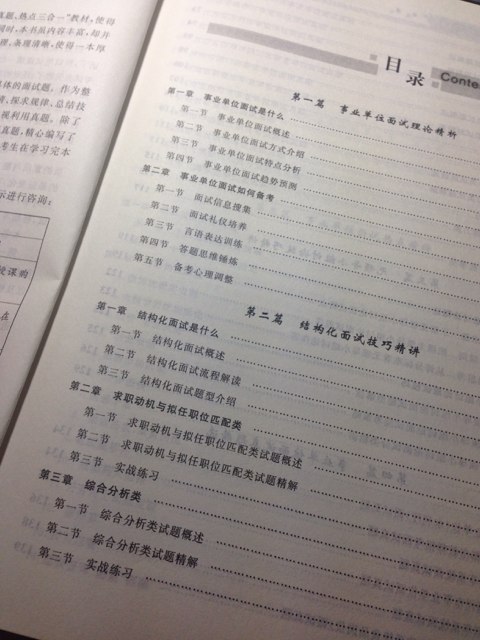 真题、热点三合一”教材,使得
同时,本书虽内容丰富,却并
条理清晰,使得一本厚
体的面试题。作为整
探求规律、总结技
视利用真题。除了
真题,精心编写了
考生在学习完本
示进行咨询:
授课购
在
目录 Conte
第一篇 事业单位面试理论精析
第一章 事业单位面试是什么
第一节 事业单位面试概述
第二节 事业单位面试方式介绍
第三节 事业单位面试特点分析
第四节 事业单位面试趋势预测
第二章 事业单位面试如何备考
第一节 面试信息搜集
第二节 面试礼仪培养
第三节 言语表达训练
第四节 答题思维锤炼
第五节 备考心理调整
第二篇 结构化面试技巧精讲
第一章 结构化面试是什么
第一节 结构化面试概述
第二节 结构化面试流程解读
第三节 结构化面试题型介绍
第二章 求职动机与拟任职位匹配类
第一节 求职动机与拟任职位匹配类试题概述
第二节 求职动机与拟任职位匹配类试题精解
第三节 实战练习
第三章 综合分析类
第一节 综合分析类试题概述
第二节 综合分析类试题精解
第三节 实战练习